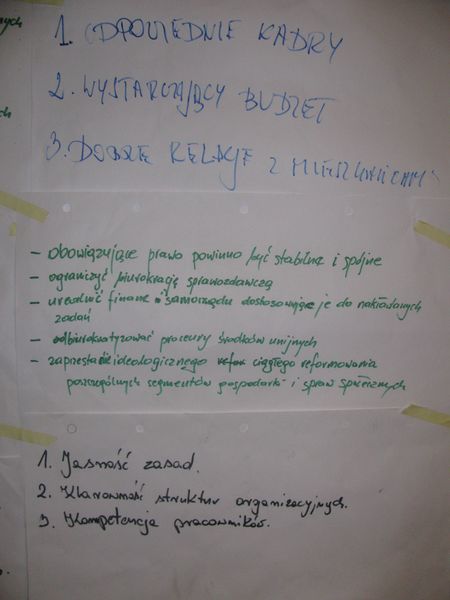 1. ODPOWIEDNIE KADRY
2. WYSTARCZAJĄCY BUDŻET
3. DOBRE RELACJE Z MIESZKAŃCAMI
- obowiązujące prawo powinno być stabilne i spójne
- ograniczyć biurokrację sprawozdawczą
- urealnić finanse samorządu dostosowując je do nakładanych
zadań
- odbiurokratyzować procedury środków unijnych
- zaprzestanie ideologicznego ciągłego reformowania
poszczególnych segmentów gospodarki i spraw społecznych
1. Jasność zasad.
2. Klarowność struktur organizacyjnych.
3. Kompetencja pracowników.